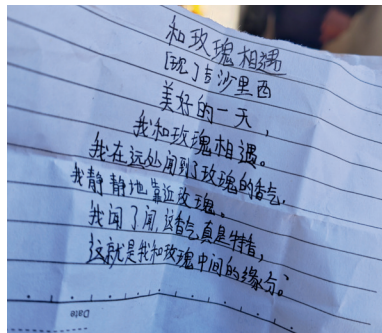 和玫瑰相遇
[现]吉沙里西
美好的一天，
我和玫瑰相遇。
我在远处闻到了玫瑰的香气，
我静静地靠近玫瑰，
我闻了闻，这香气真是特香，
这就是我和玫瑰中间的缘分。
Date